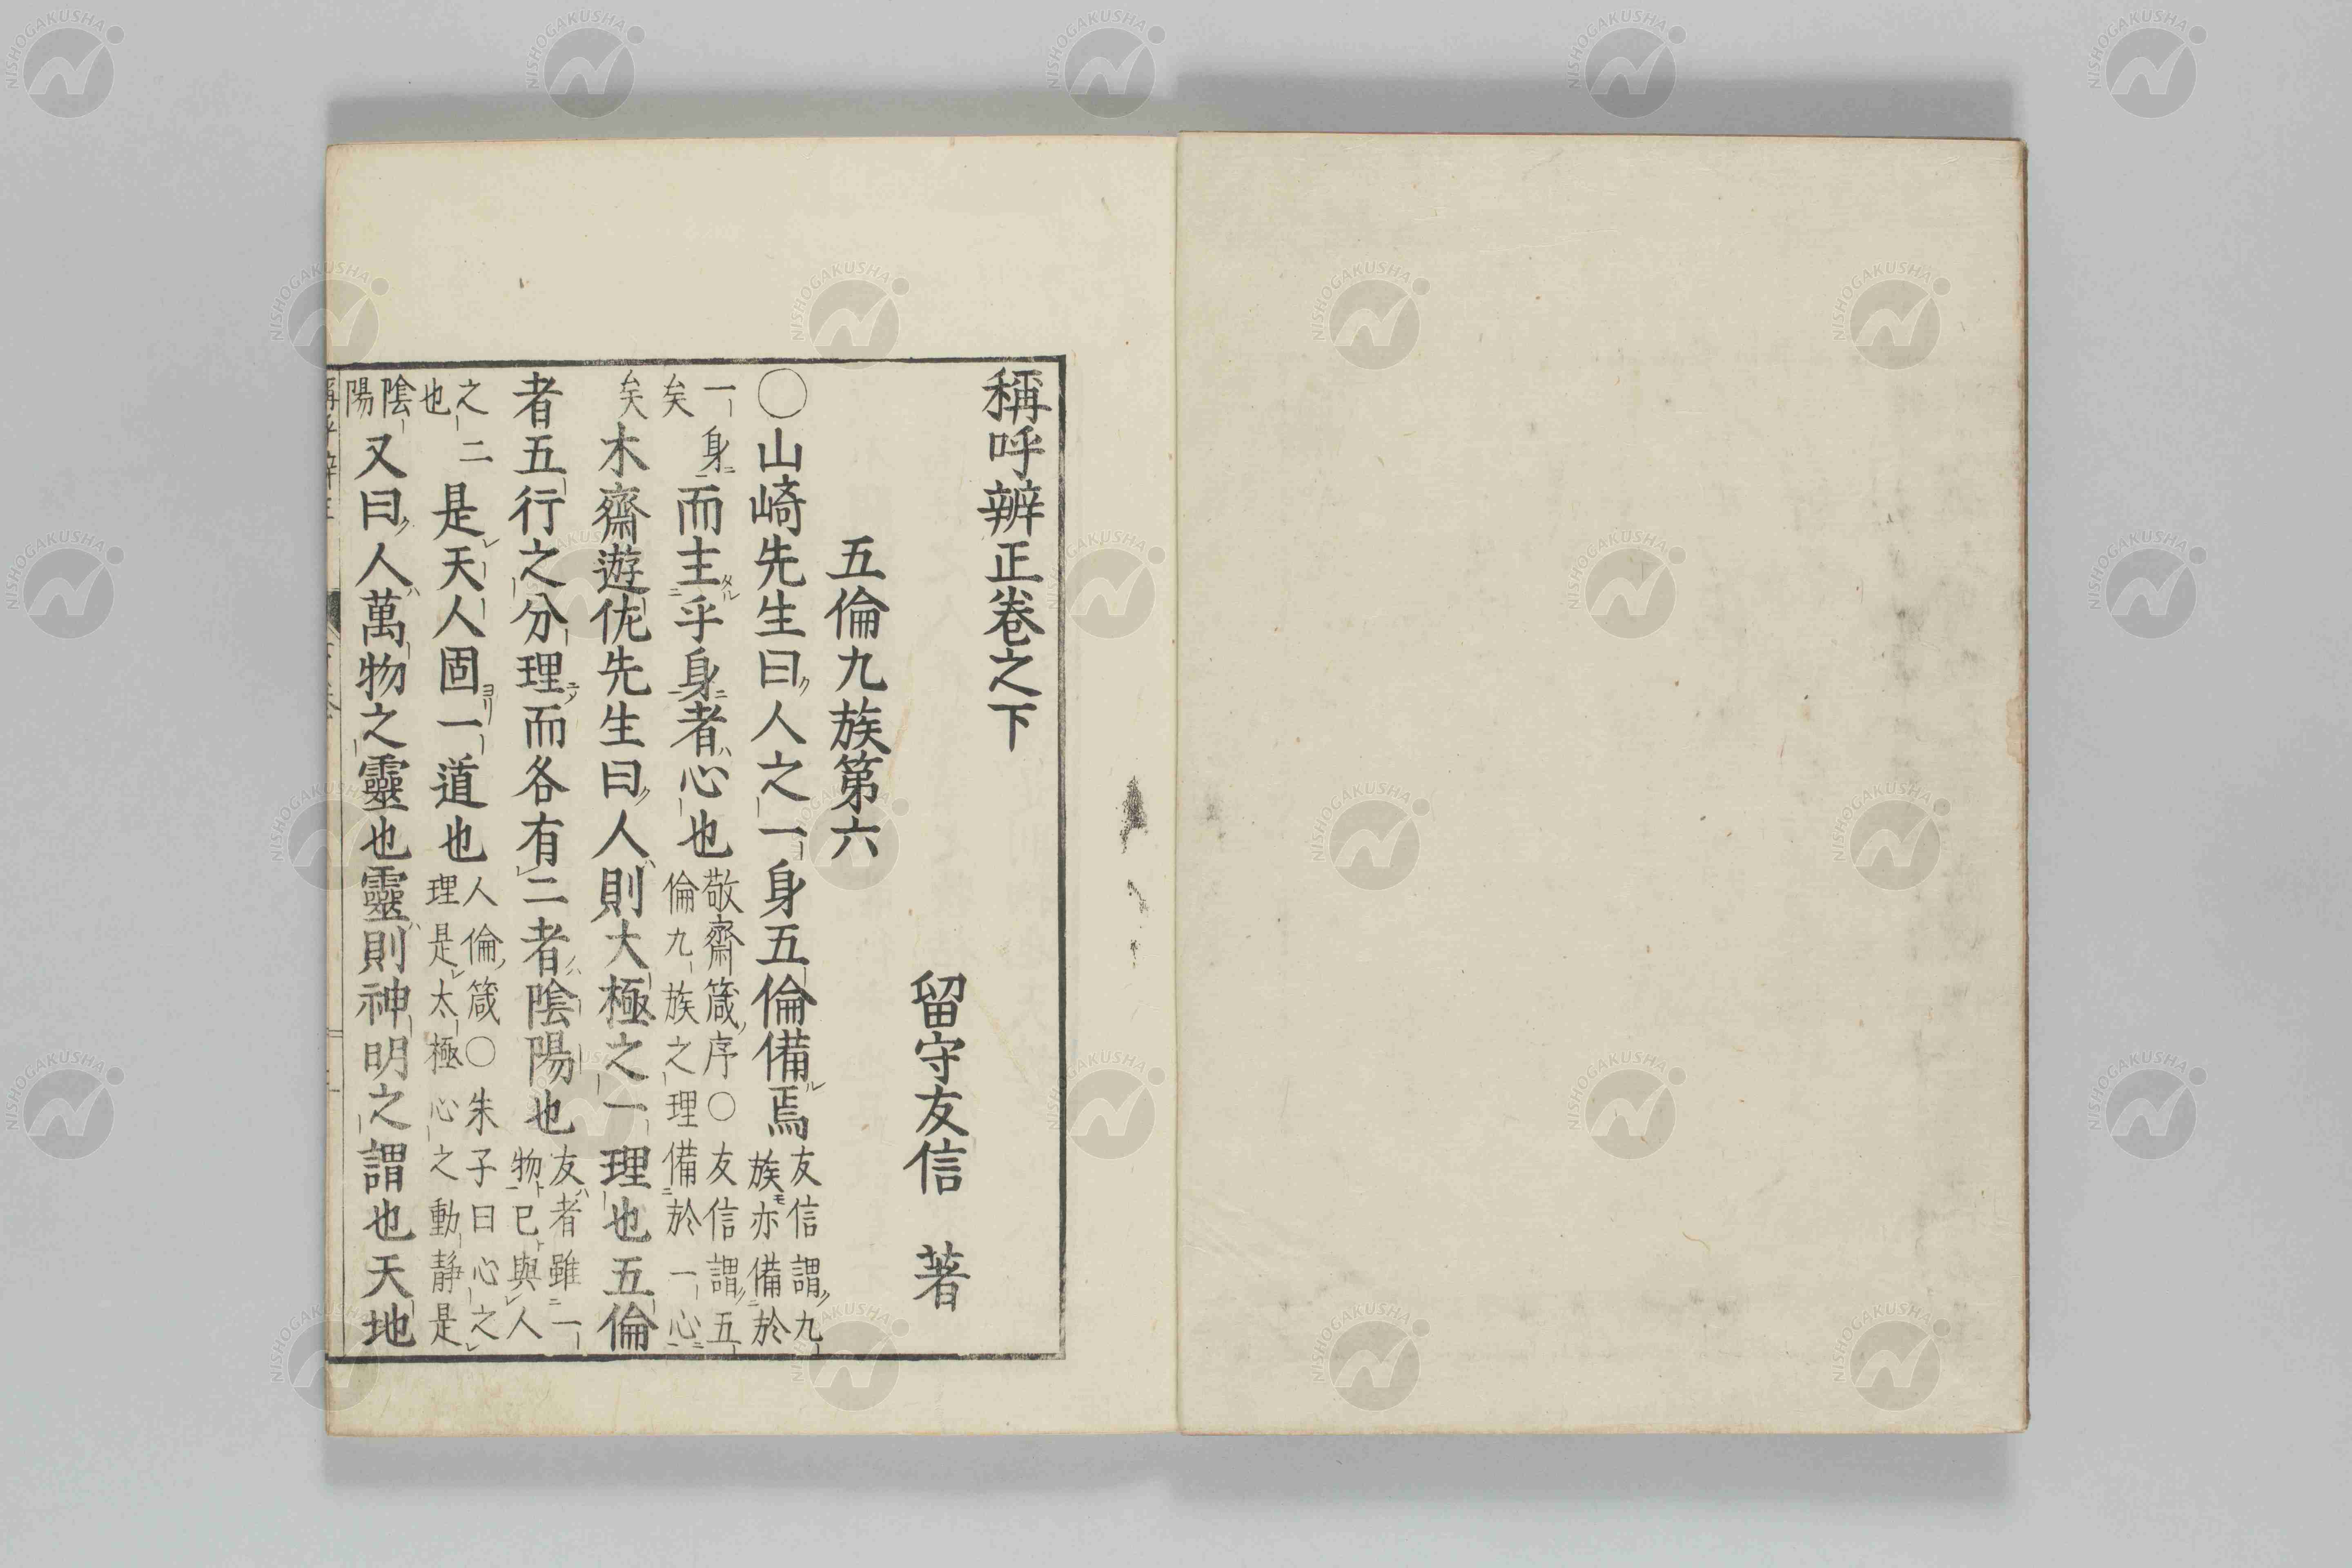 稱呼辨正卷之下
留守友信 著
五倫九族第六
〇山崎先生曰人之一身五倫備焉友信謂九族亦備於
一身矣而主乎身者心也敬齋箴序〇友信謂五倫九族之理備於一心
矣木齋遊佐先生曰人則大極之一理也五倫
者五行之分理而各有二者隂陽也友者雖一物已與人
之二也是天人固一道也人倫箴〇朱子曰心之理是太極心之動靜是
隂陽又曰人萬物之靈也靈則神明之謂也天地
NISHOGAKUSHA